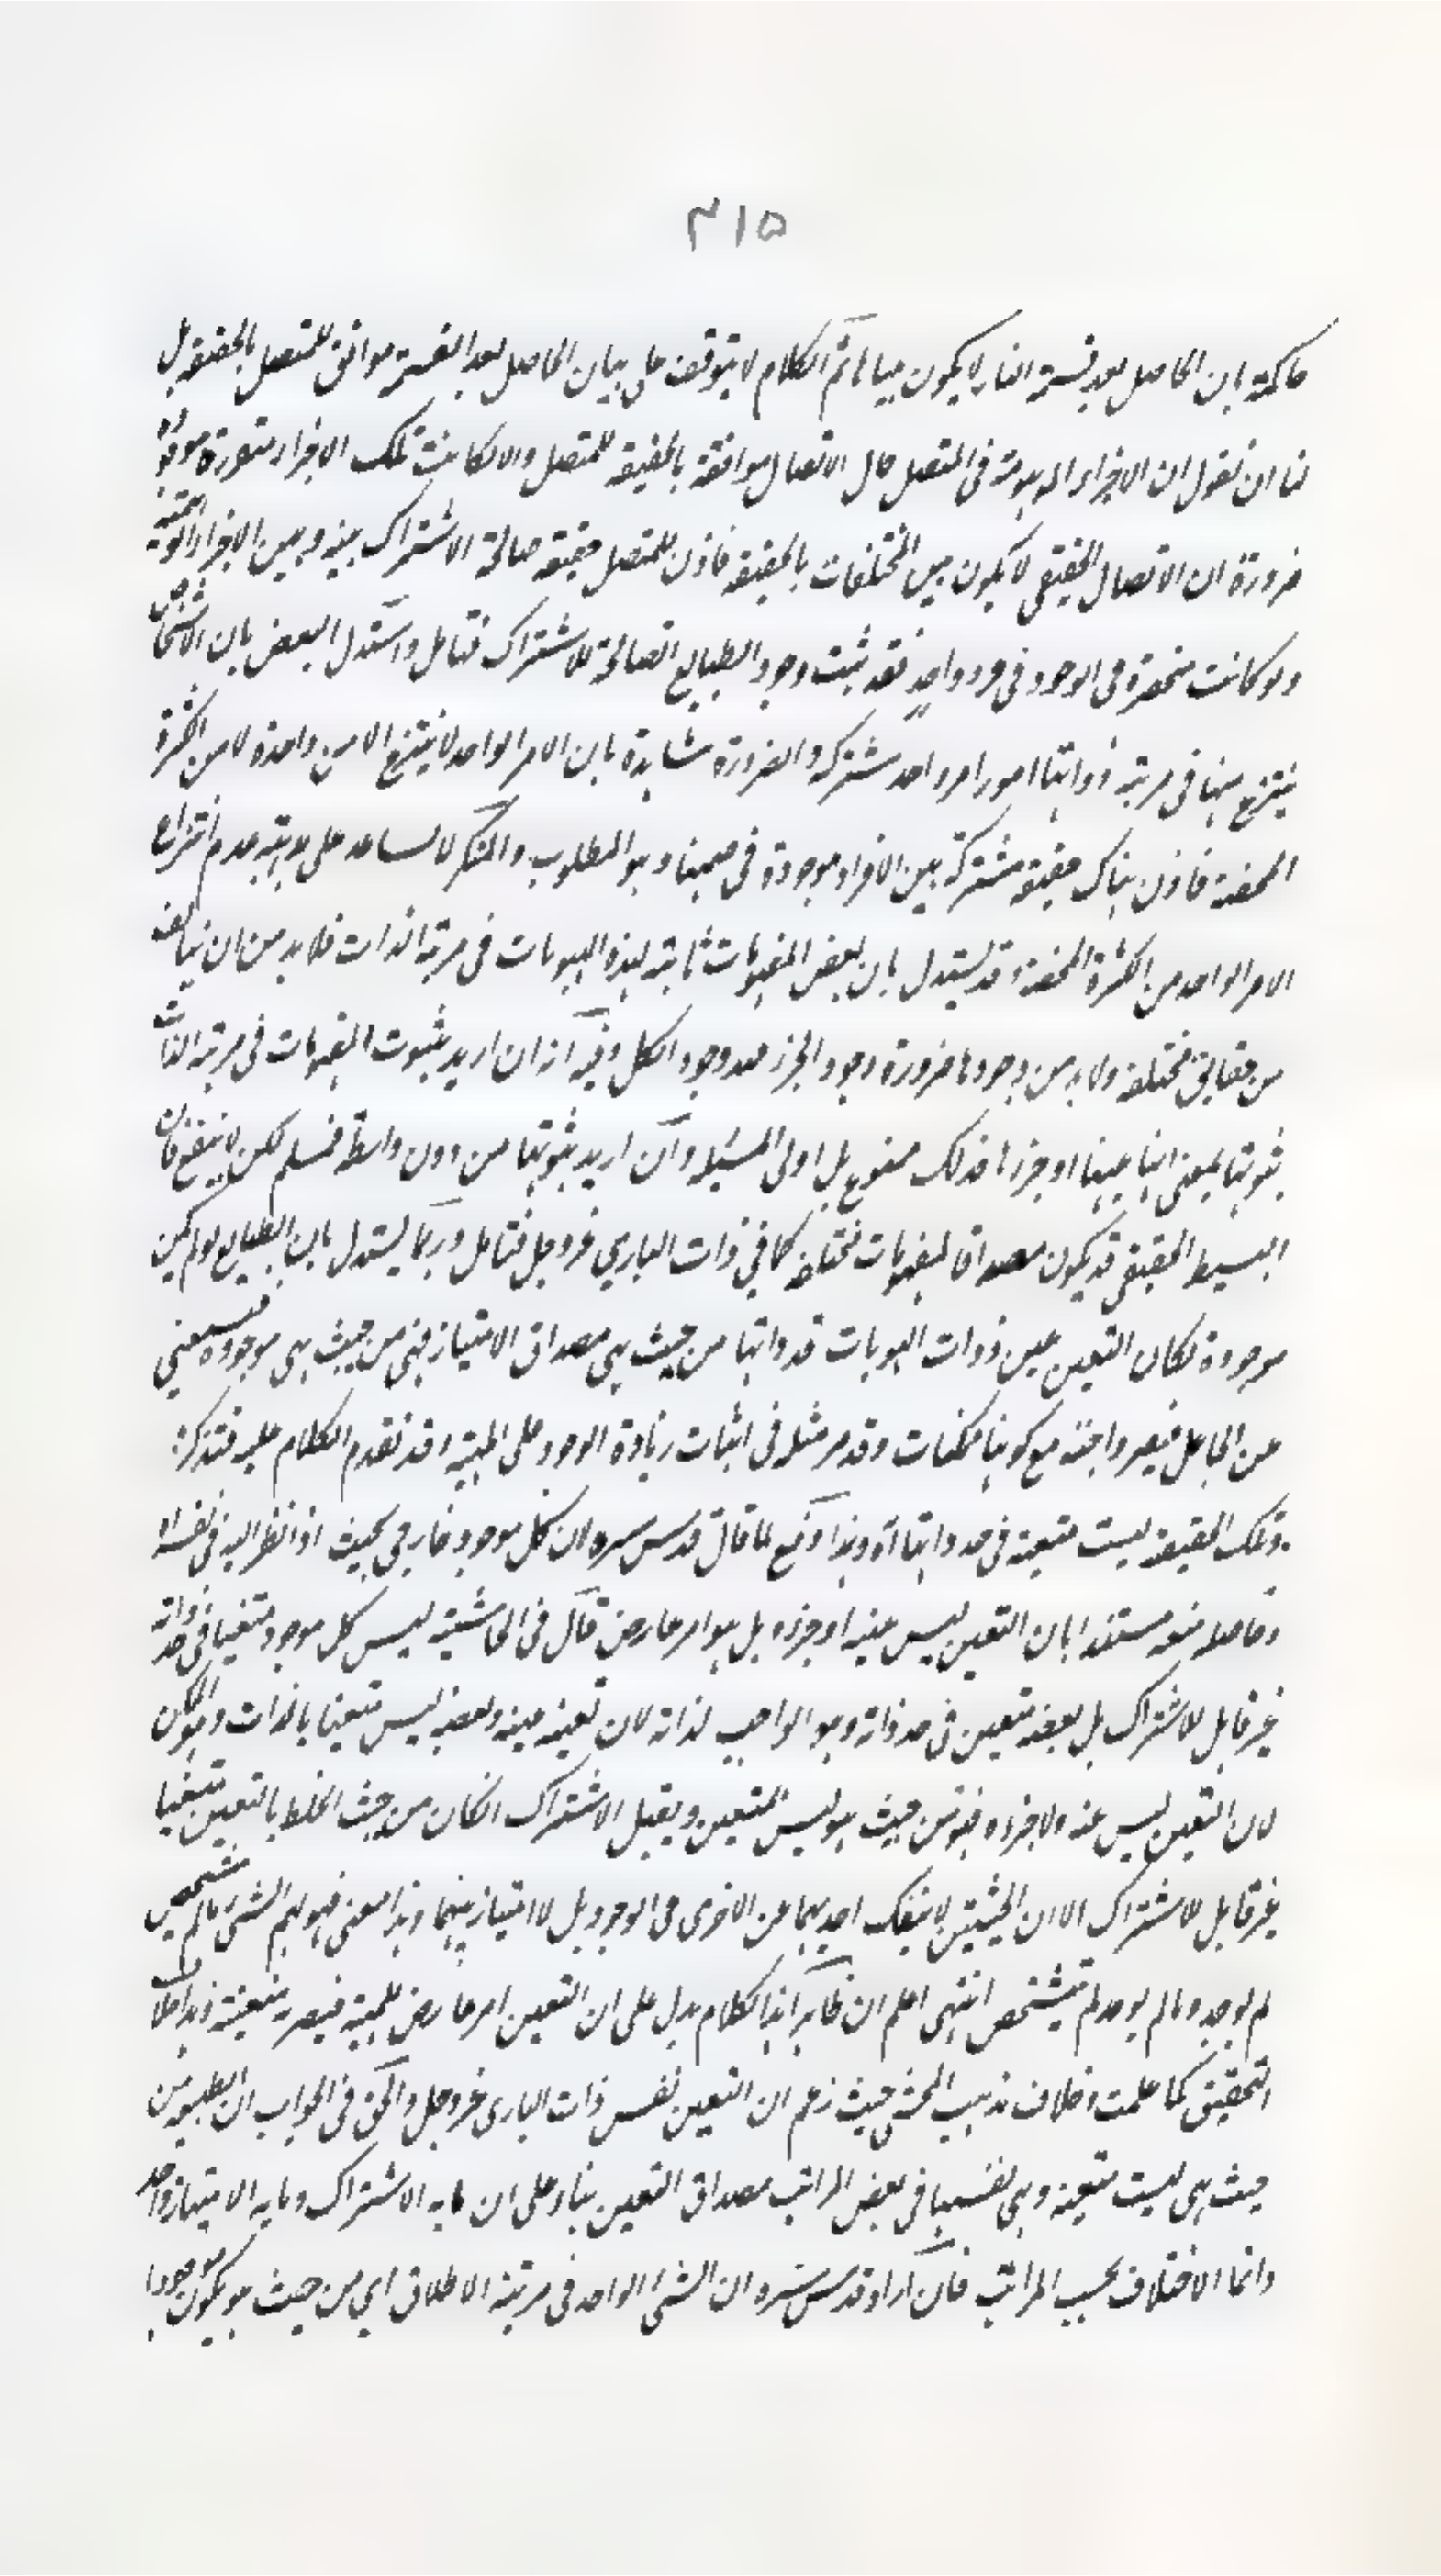 ٣١٥
حاكمة بان الحاصل بعد قسمة النار لا يكون مباينا ثم الكلام لا يتوقف على بيان الحاصل بعد القسمة موافق للمتصل بالحقيقة بل
لنا ان نقول ان الاجزاء الموهومة فى المتصل حال الاتصال موافقة بالحقيقة للمتصل والا لكانت تلك الاجزاء متصورة موجودة
ضرورة ان الاتصال الحقيقي لا يكون بين المختلفات بالحقيقة فاذن للمتصل حقيقة صالحة الاشتراك بينه وبين الاجزاء الوهمية
ولو كانت منحصرة فى الوجود فى فرد واحد فقد ثبت وجود الطبايع الصالحة للاشتراك فتامل واستدل البعض بان الاشخاص
ينتزع منها فى مرتبة ذواتها امور امر واحد مشترك والضرورة شاهدة بان الامر الواحد لا ينتزع الا من واحدة لا من الكثرة
المحضة فاذن هناك حقيقة مشتركة بين الافراد موجودة فى ضمنها وهو المطلوب والمنكر لا يساعد على بداهة عدم انتزاع
الامر الواحد من الكثرة المحضة وقد يستدل بان بعض المفهومات ثابتة لهذه الهويات فى مرتبة الذات فلا بد من ان يتالف
من حقايق مختلفة ولا بد من وجودها ضرورة وجود الجزء عند وجود الكل وفيه انه ان اريد بثبوت المفهومات فى مرتبة الذات
ثبوتها بمعنى انها عينها او جزءها فذلك ممنوع بل اولى المسئلة وان اريد ثبوتها من دون واسطة فمسلم لكن لا ينفع فان
البسيط الحقيقي قد يكون مصداقا لمفهومات مختلفة كما فى ذات الباري عز وجل فتامل وربما يستدل بان الطبايع لو لم يكن
موجودة لكان التعين عين ذوات الهويات فذواتها من حيث هى مصداق الامتياز فهى من حيث هى موجودة فيستغنى
عن الجاعل فيصير واجبة مع كونها ممكنات وقد مر مثله فى اثبات زيادة الوجود على المهية وقد تقدم الكلام عليه فتذكر:
وتلك الحقيقة ليست متعينة فى حد ذاتها اه وهذا دفع لما قال قدس سره لان كل موجود خارجى بحيث اذا نظر اليه فى نفسه اه
وحاصله منعه مستندا بان التعين ليس عينه او جزءه بل هو امر عارض قال فى الحاشية ليس كل موجود متعينا فى حد ذاته
غير قابل للاشتراك بل بعضه متعين فى حد ذاته وهو الواجب لذاته لان تعينه عينه وبعضه ليس متعينا بالذات وهو الممكن
لان التعين ليس عينه ولا جزءه فهو من حيث هو ليس المتعين ويقبل الاشتراك ان كان من حيث الخلط بالتعين متعينا
غير قابل للاشتراك الا ان الحيثيتين لا ينفك احديهما عن الاخرى فى الوجود بل لا امتياز بينهما وهذا معنى قولهم الشئ ما لم يتشخص
لم يوجد وما لم يوجد لم يتشخص انتهى اعلم ان ظاهر هذا الكلام يدل على ان التعين امر عارض للمهية فيصير به متعينة وهذا خلاف
التحقيق كما علمت وخلاف مذهب المحشى حيث زعم ان التعين نفس ذات البارى عز وجل والحق فى الجواب ان الطبيعة من
حيث هى ليست متعينة وهى بنفسها فى بعض المراتب مصداق التعين بناء على ان ما به الاشتراك وما به الامتياز واحد
وانما الاختلاف بحسب المراتب فان اراد قدس سره ان الشئ الواحد فى مرتبة الاطلاق اي من حيث هو يكون موجودا